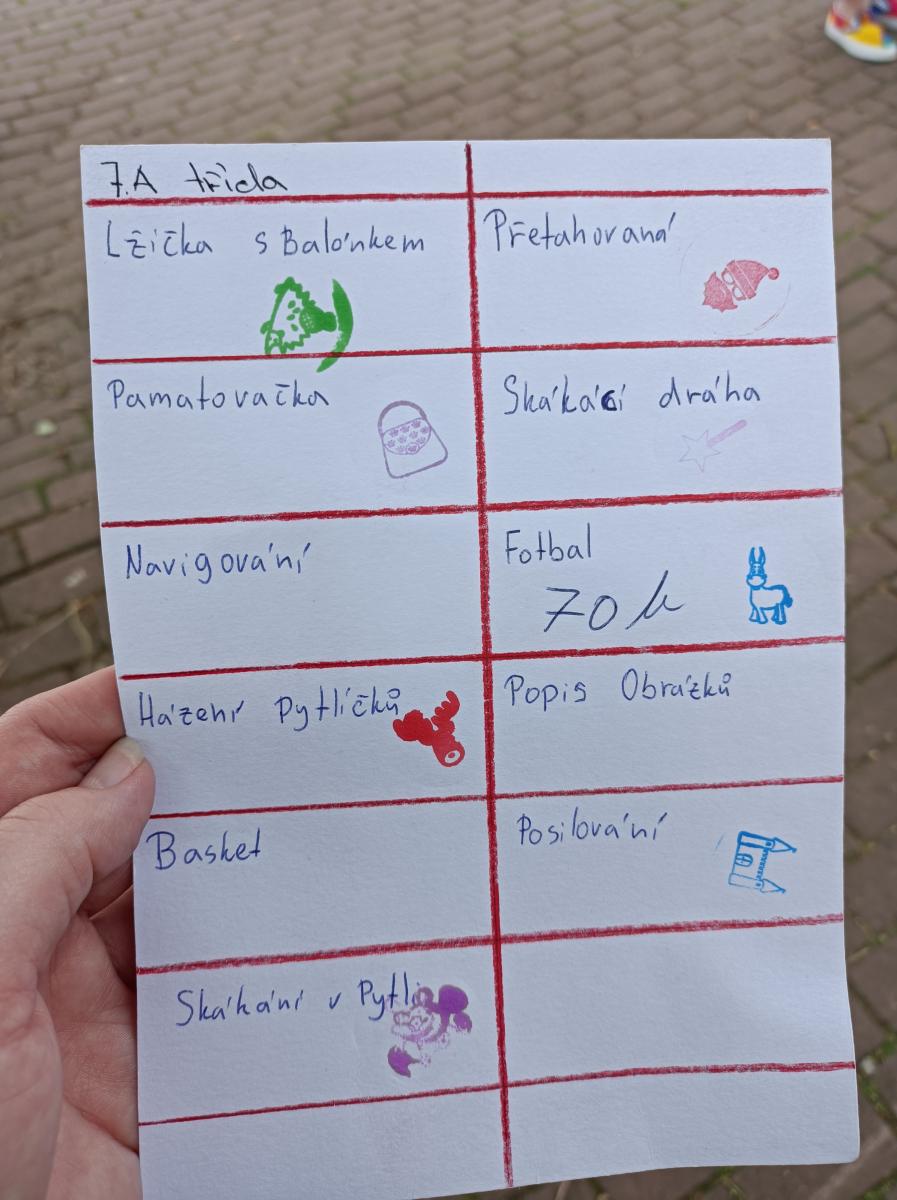 7.A třída
Lžička s Balónkem
Přetahovaná
Pamatovačka
Skákací dráha
Navigování
Fotbal
70 k
Házení Pytlíčků
Popis Obrázků
Basket
Posilování
Skákání v Pytli